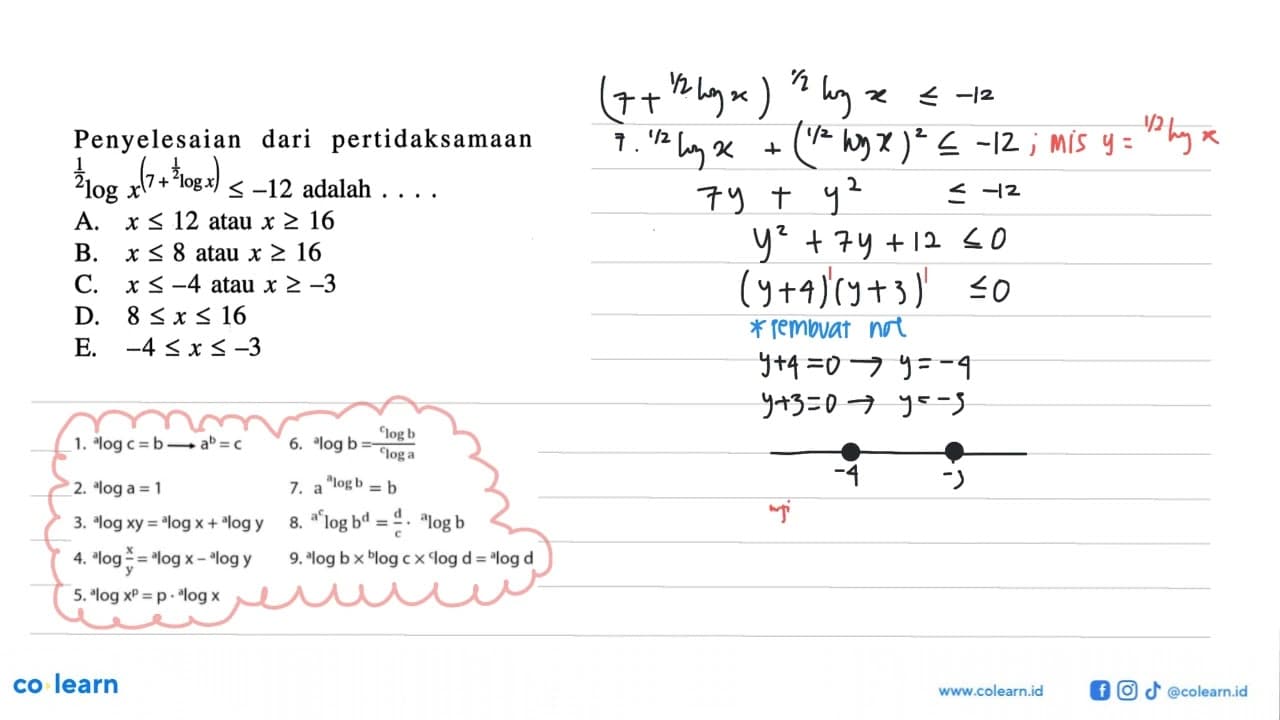 Penyelesaian dari pertidaksamaan
½log x^(7 + ½log x) ≤ –12 adalah . . . .
A. x ≤ 12 atau x ≥ 16
B. x ≤ 8 atau x ≥ 16
C. x ≤ –4 atau x ≥ –3
D. 8 ≤ x ≤ 16
E. –4 ≤ x ≤ –3
1. ᵃlog c = b ⟶ aᵇ = c
2. ᵃlog a = 1
3. ᵃlog xy = ᵃlog x + ᵃlog y
4. ᵃlog x/y = ᵃlog x – ᵃlog y
5. ᵃlog xᵖ = p · ᵃlog x
6. ᵃlog b = ᶜlog b / ᶜlog a
7. a^(ᵃlog b) = b
8. ^(aᶜ)log bᵈ = d/c · ᵃlog b
9. ᵃlog b x ᵇlog c x ᶜlog d = ᵃlog d
(7 + ½log x) ½log x ≤ -12
7 . ½log x + (½log x)² ≤ -12 ; mis y = ½log x
7y + y² ≤ -12
y² + 7y + 12 ≤ 0
(y+4)(y+3) ≤ 0
* pembuat nol
y+4 = 0 → y = -4
y+3 = 0 → y = -3
-4 -3
uji
co learn
www.colearn.id
@colearn.id